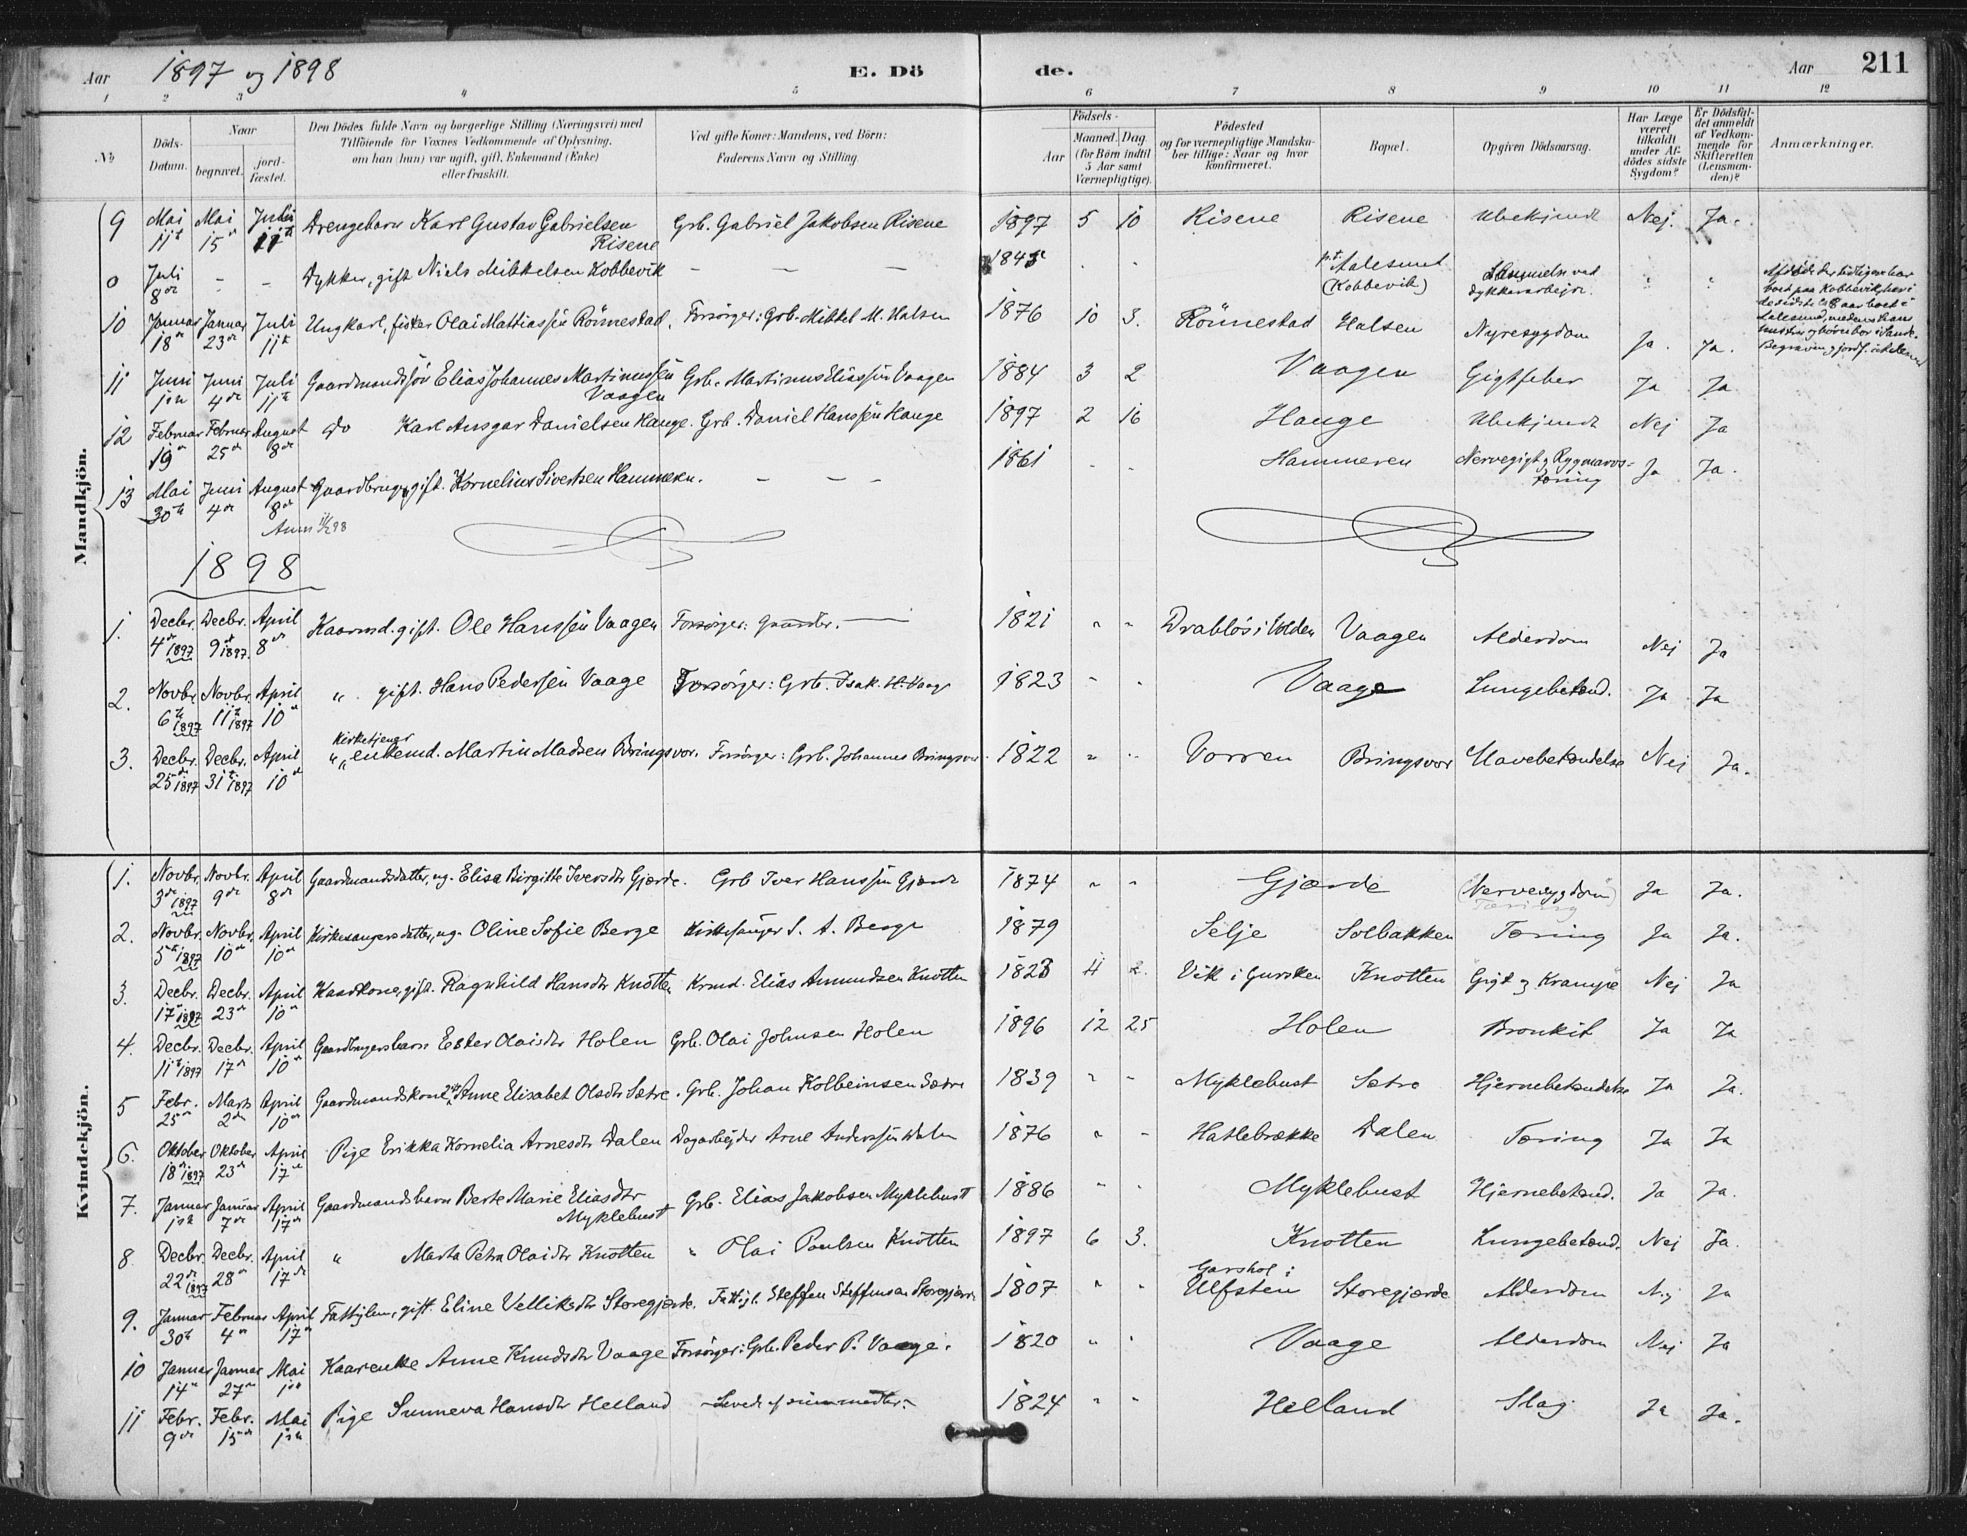 Aar 1897 og 1898 E. Dö de. Aar 211
1 2 3 4 5 6 7 8 9 10 11 12
№ Döds-Datum. Naar begravet. jordfæstet. Den Dödes fulde Navn og borgerlige Stilling (Næringsvei) med Tilföiende for Voxnes Vedkommende af Oplysning, om han (hun) var ugift, gift, Enkemand (Enke) eller fraskilt. Ved gifte Koner: Mandens, ved Börn: Faderens Navn og Stilling. Födsels- Aar Maaned. Dag (for Börn indtil 5 Aar samt Værnepligtige). Födested og for værnepligtige Mandskaber tillige: Naar og hvor konfirmeret. Bopæl. Opgiven Dödsaarsag. Har Læge været tilkaldt under Afdödes sidste Sygdom? Er Dödsfaldet anmeldt af Vedkommende for Skifteretten (Lensmanden)? Anmærkninger.
Mandkjön.
9 Mai 11t Mai 15 Juli 11t Drengebarn Karl Gustav Gabrielsen Risene Grb. Gabriel Jakobsen Risene 1897 5 10 Risene Risene Ubekjendt Nej. Ja.
0 Juli 8de - - Dykker, gift Niels Mikkelsen Kobbevik - - - 1845 p.t. Aalesund (Kobbevik) ved dykkerarbejde. Afdøde der tidligere har boet paa Kobbevik, har i de sidste 8 aar boet i Aalesund, medens hans hustru og børn bor i Sande. Begraven og jordf. i Aalesund
10 Januar 18 Januar 23de Juli 11t Ungkarl, fisker Olai Mattiassen Rönnestad. Forsörger: Grb. Mikkel M. Halsen 1876 10 3. Rönnestad Halsen Nyresygdom Ja. Ja.
11 Juni 1ste Juni 4de Juli 11t Gaardmandssön Elias Johannes Martinussen Vaagen Grb. Martinus Eliassen Vaagen 1884 3 2 Vaagen Gigtfeber Ja Ja.
12 Februar 19 Februar 25 August 8de Do Karl Ansgar Danielsen Hauge. Grb. Daniel Hanssen Hauge 1897 2 16 Hauge Ubekjendt Nej Ja
13 Mai 30te Juni 4de August 8de Gaardbruger, gift. Kornelius Sivertsen Hammeren. - - - 1861 - - Hammeren Nervegigt og Rygmarvstæring Ja Ja.
1898
1. Decbr. 4de 1897 Decbr. 9de 1897 April 8de Kaarmd. gift. Ole Hanssen Vaagen Forsörger: 1821 " " Drabløs i Volden Vaagen Alderdom Nej Ja
2. Novbr. 6t 1897 Novbr. 11t 1897 April 10 " gift. Hans Pedersen Vaage Forsörger: Grb. Isak H. Vaage 1823 " " Vaage Lungebetænd. Ja Ja
3. Decbr. 25 1897 Decbr. 31t 1897 April 10 Kirketjener " enkemd. Martin Madsen Bringsvor. Forsörger: Grb. Johannes Bringsvor. 1822 " " Vorren Bringsvor Mavebetændelse Nej Ja.
Kvindekjön.
1. Novbr. 3de 1897 Novbr. 9de April 8de Gaardmandsdatter, ug. Elise Birgitte Iversdtr Gjærde. Grb Iver Hanssen Gjærde 1874 " " Gjærde (Nervesygdom) Tæring Ja Ja.
2. Novbr. 5te 1897 Novbr. 10de April 10de Kirkesangersdatter, ug. Oline Sofie Berge Kirkesanger S. A. Berge 1879 Selje Solbakken Tæring Ja Ja.
3. Decbr. 17 1897 Decbr. 23de April 10de Kaarkone, gift. Ragnhild Hansdtr Knotten Krmd. Elias Amundsen Knotten 1823 4 2. Vik i Gursken Knotten Gigt og Krampe Nej Ja
4. Decbr. 11t 1897 Decbr. 17de April 10de Gaardbrugersbarn Ester Olaisdtr Holen Grb. Olai Johnsen Holen 1896 12 25 Holen Bronkit Ja Ja
5 Febr. 25de Marts 2den April 10de Gaardmandskone Anne Elisabet Olsdtr Sætre. Grb. Johan Kolbeinsen Sætre 1839 " " Myklebust Sætre Hjernebetændelse Ja Ja.
6. Oktober 18 1897 Oktober 23de April 17de Pige Erikka Kornelia Arnesdtr Dalen Dagarbejder Arne Anderssen Dalen 1876 " " Hatlebrække Dalen Tæring Ja Ja
7. Januar 1ste Januar 7de April 17de Gaardmandsbarn Berte Marie Eliasdtr Myklebust Grb. Elias Jakobsen Myklebust 1886 " " Myklebust Hjernebetænd. Ja Ja.
8. Decbr. 22de 1897 Decbr. 28de April 17de " Marta Petra Olaidtr Knotten " Olai Poulsen Knotten 1897 6 3. Knotten Lungebetænd. Nej Ja.
9. Januar 30te Februar 4de April 17de Fattiglem, gift. Eline Velliksdtr Storegjærde. Fattigl. Steffen Steffensen Storegjærde 1807 " " Garshol i Ulfsten Storegjærde Alderdom Nej Ja
10 Januar 14de Januar 27de Mai 1ste Kaarenke Anne Knudsdtr Vaage Forsörger: Grb. Peder P. Vaage. 1820 " " Vaage Alderdom Nej Ja
11 Febr. 9de Febr. 15de Mai 1ste Pige Sunneva Hansdtr Helland - Levede af sine midler. - 1824 " " Helland Slag Ja Ja.